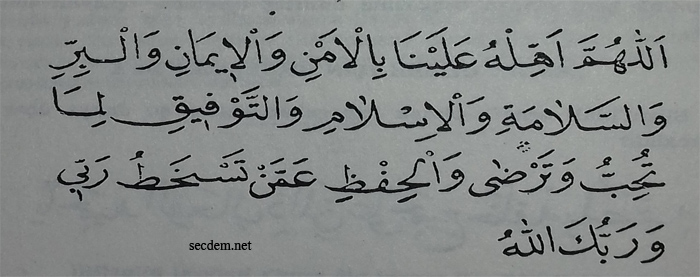 اَللّٰهُمَّ اَهِلَّهُ عَلَيْنَا بِالْاَمْنِ وَالْاِيمَانِ وَالْبِرِّ
وَالسَّلَامَةِ وَالْاِسْلَامِ وَالتَّوْفِيقِ لِمَا
تُحِبُّ وَتَرْضٰى وَالْحِفْظِ عَمَّنْ تَسْخَطُ رَبّ۪ي
وَرَبُّكَ اللّٰهُ
secdem.net